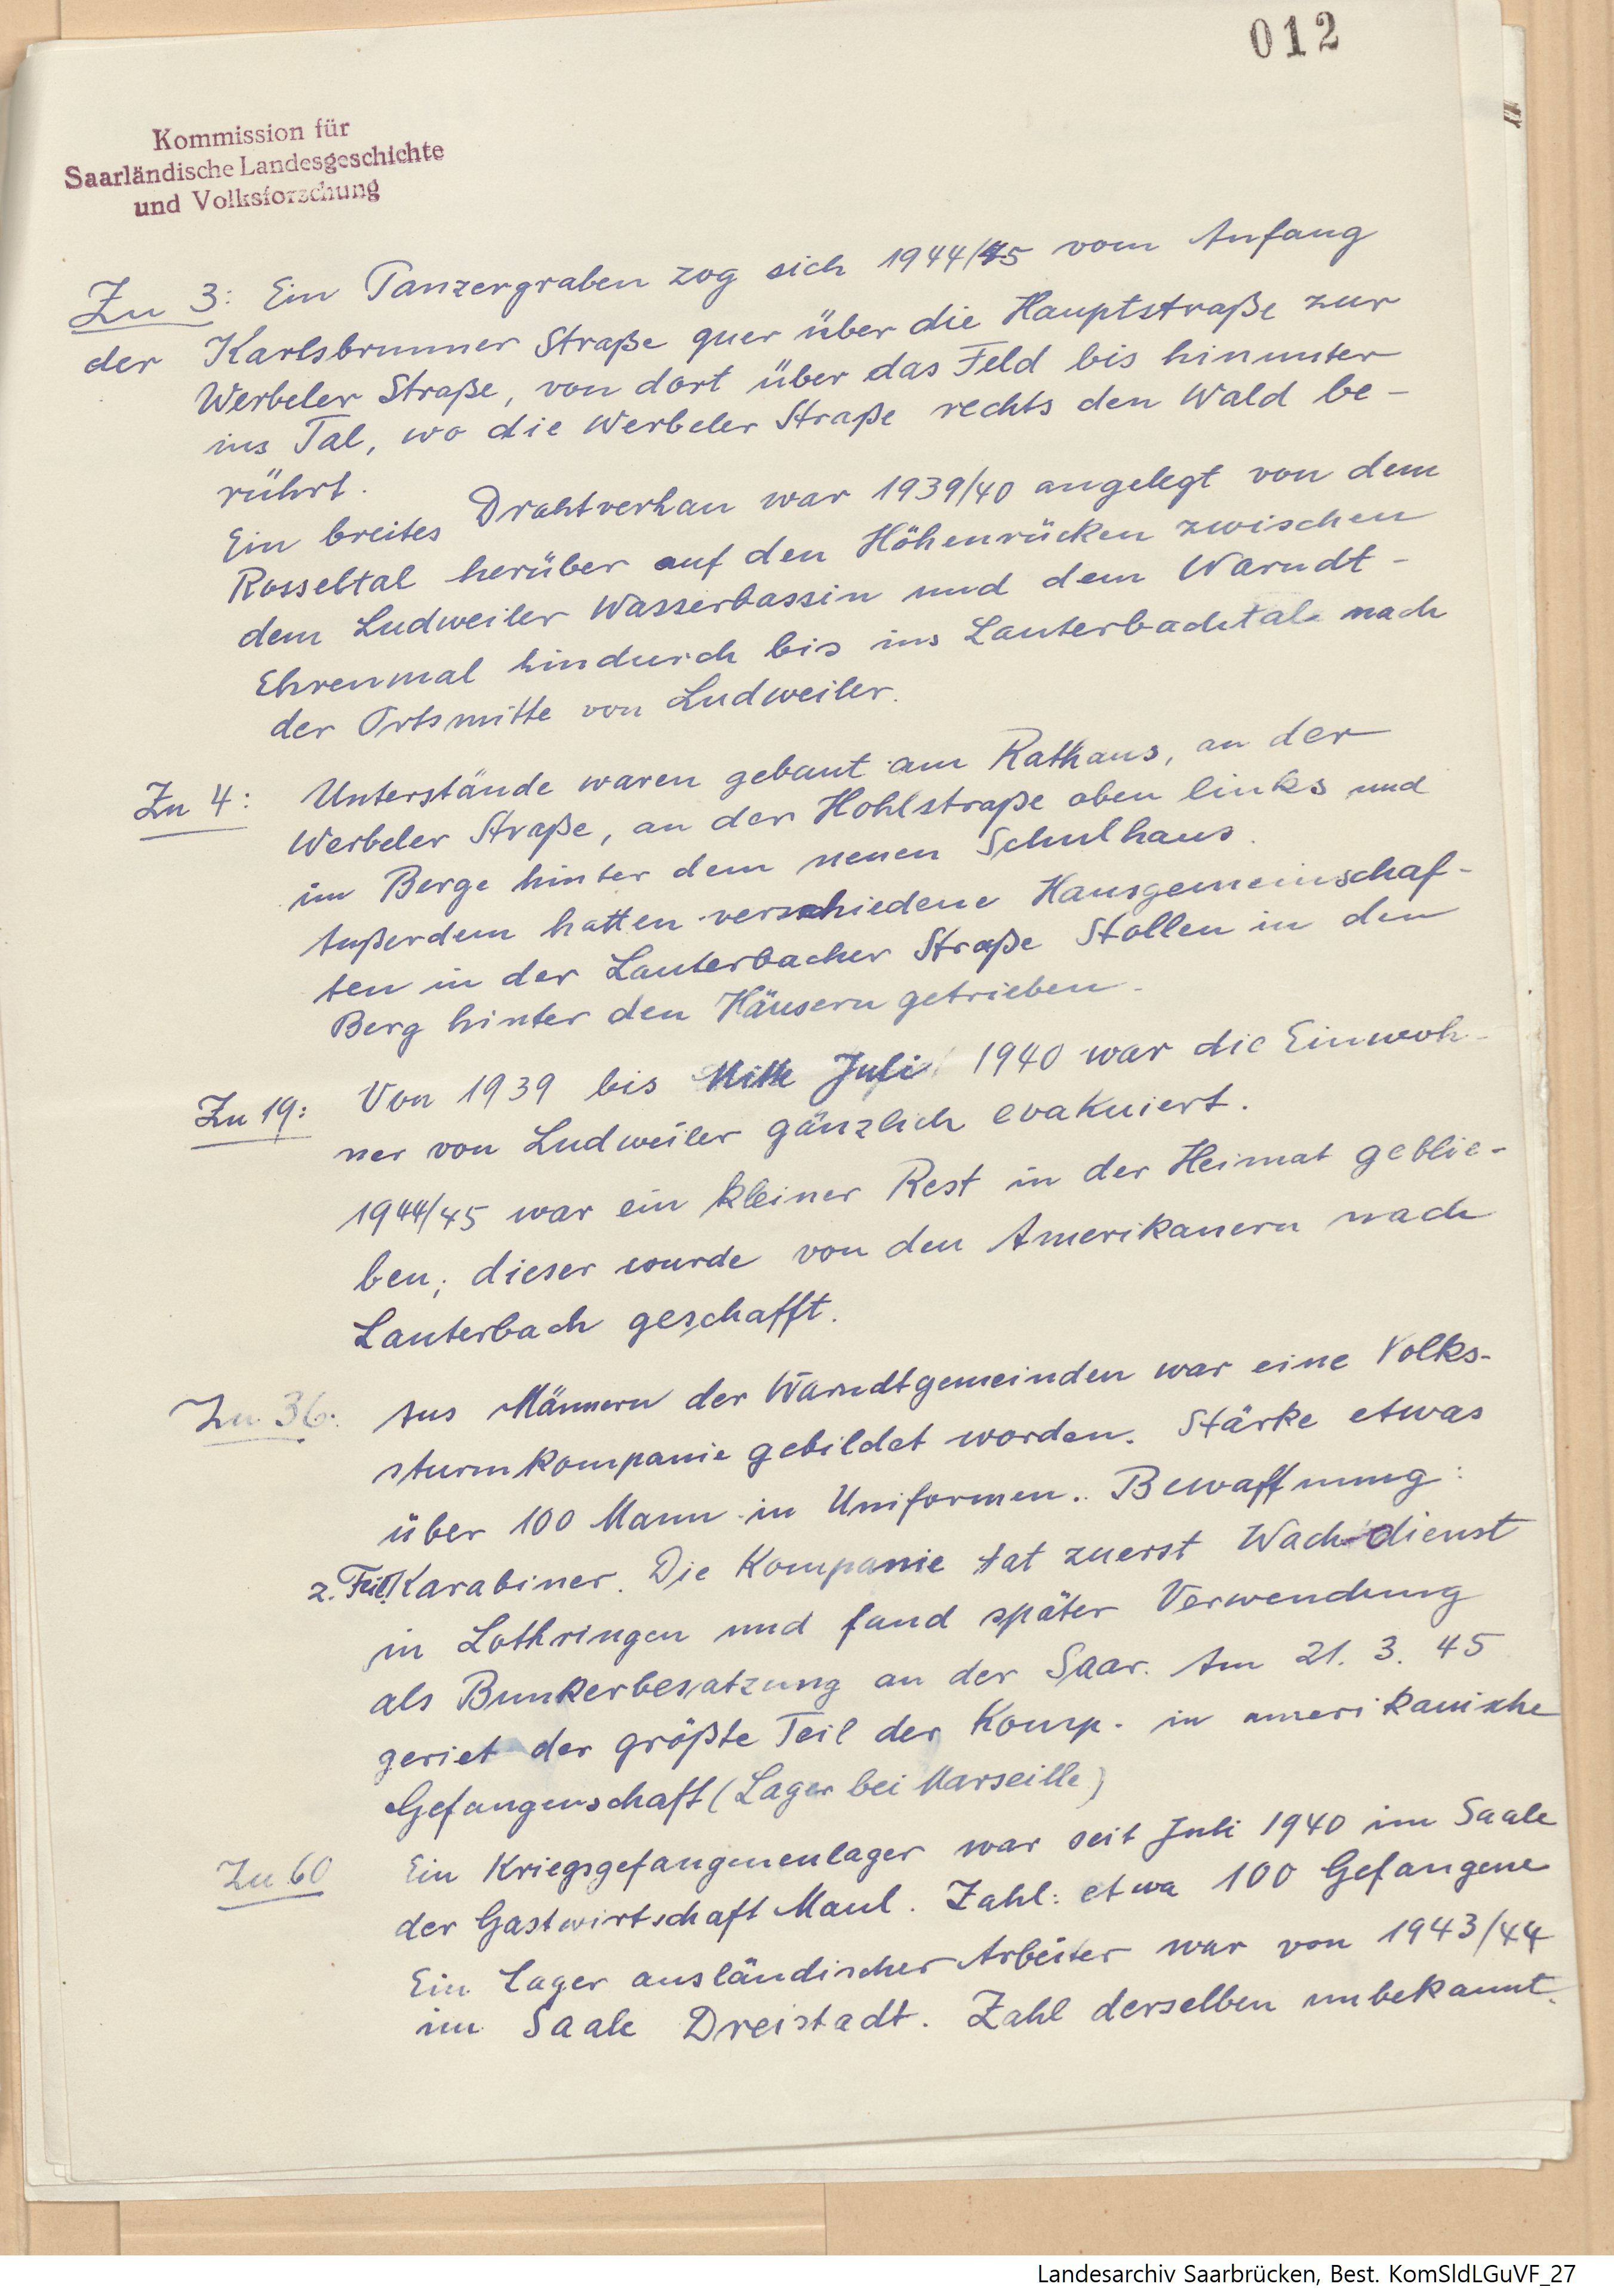 012
Kommission für
Saarländische Landesgeschichte
und Volksforschung
Zu 3: Ein Panzergraben zog sich 1944/45 vom Anfang
der Karlsbrunner Straße quer über die Hauptstraße zur
Werbeler Straße, von dort über das Feld bis hinunter
ins Tal, wo die Werbeler Straße rechts den Wald be-
rührt.
Ein breites Drahtverhau war 1939/40 angelegt von dem
Rosseltal herüber auf den Höhenrücken zwischen
dem Ludweiler Wasserbassin und dem Warndt-
Ehrenmal hindurch bis ins Lauterbachtal nach
der Ortsmitte von Ludweiler.
Zu 4: Unterstände waren gebaut am Rathaus, an der
Werbeler Straße, an der Hohlstraße oben links und
im Berge hinter dem neuen Schulhaus.
Außerdem hatten verschiedene Hausgemeinschaf-
ten in der Lauterbacher Straße Stollen in den
Berg hinter den Häusern getrieben.
Zu 19: Von 1939 bis Mitte Juli 1940 war die Einwoh-
ner von Ludweiler gänzlich evakuiert.
1944/45 war ein kleiner Rest in der Heimat geblie-
ben; dieser wurde von den Amerikanern nach
Lauterbach geschafft.
Zu 36: Aus Männern der Warndtgemeinden war eine Volks-
sturmkompanie gebildet worden. Stärke etwas
über 100 Mann in Uniformen. Bewaffnung:
z. Teil Karabiner. Die Kompanie tat zuerst Wachdienst
in Lothringen und fand später Verwendung
als Bunkerbesatzung an der Saar. Am 21. 3. 45
geriet der größte Teil der Komp. in amerikanische
Gefangenschaft (Lager bei Marseille)
Zu 60 Ein Kriegsgefangenenlager war seit Juli 1940 im Saale
der Gastwirtschaft Maul. Zahl: etwa 100 Gefangene
Ein Lager ausländischer Arbeiter war von 1943/44
im Saale Dreistadt. Zahl derselben unbekannt.
Landesarchiv Saarbrücken, Best. KomSldLGuVF_27